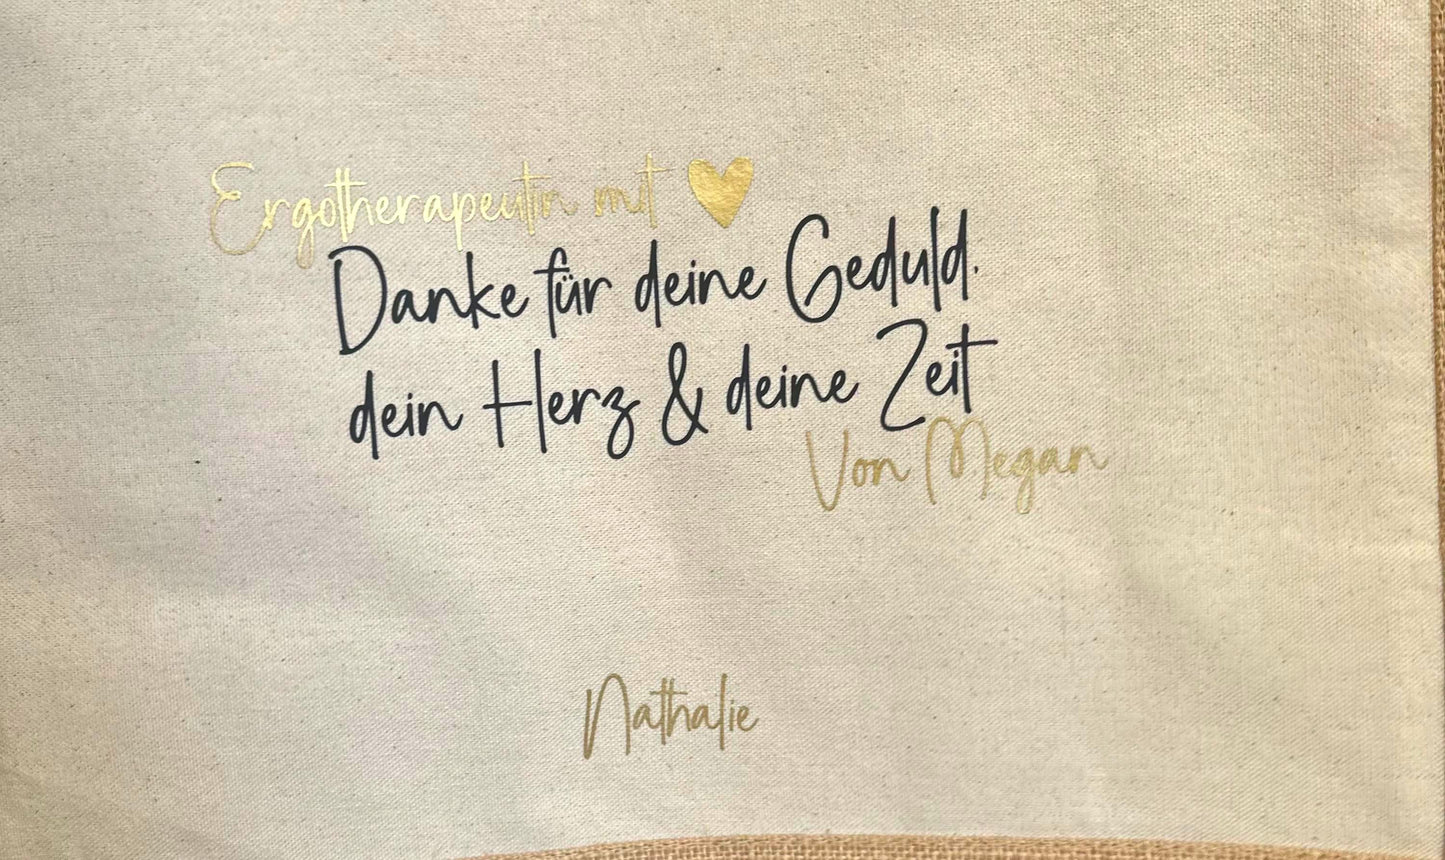 Ergotherapeutin mit ♥
Danke für deine Geduld,
dein Herz & deine Zeit
Von Megan
Nathalie